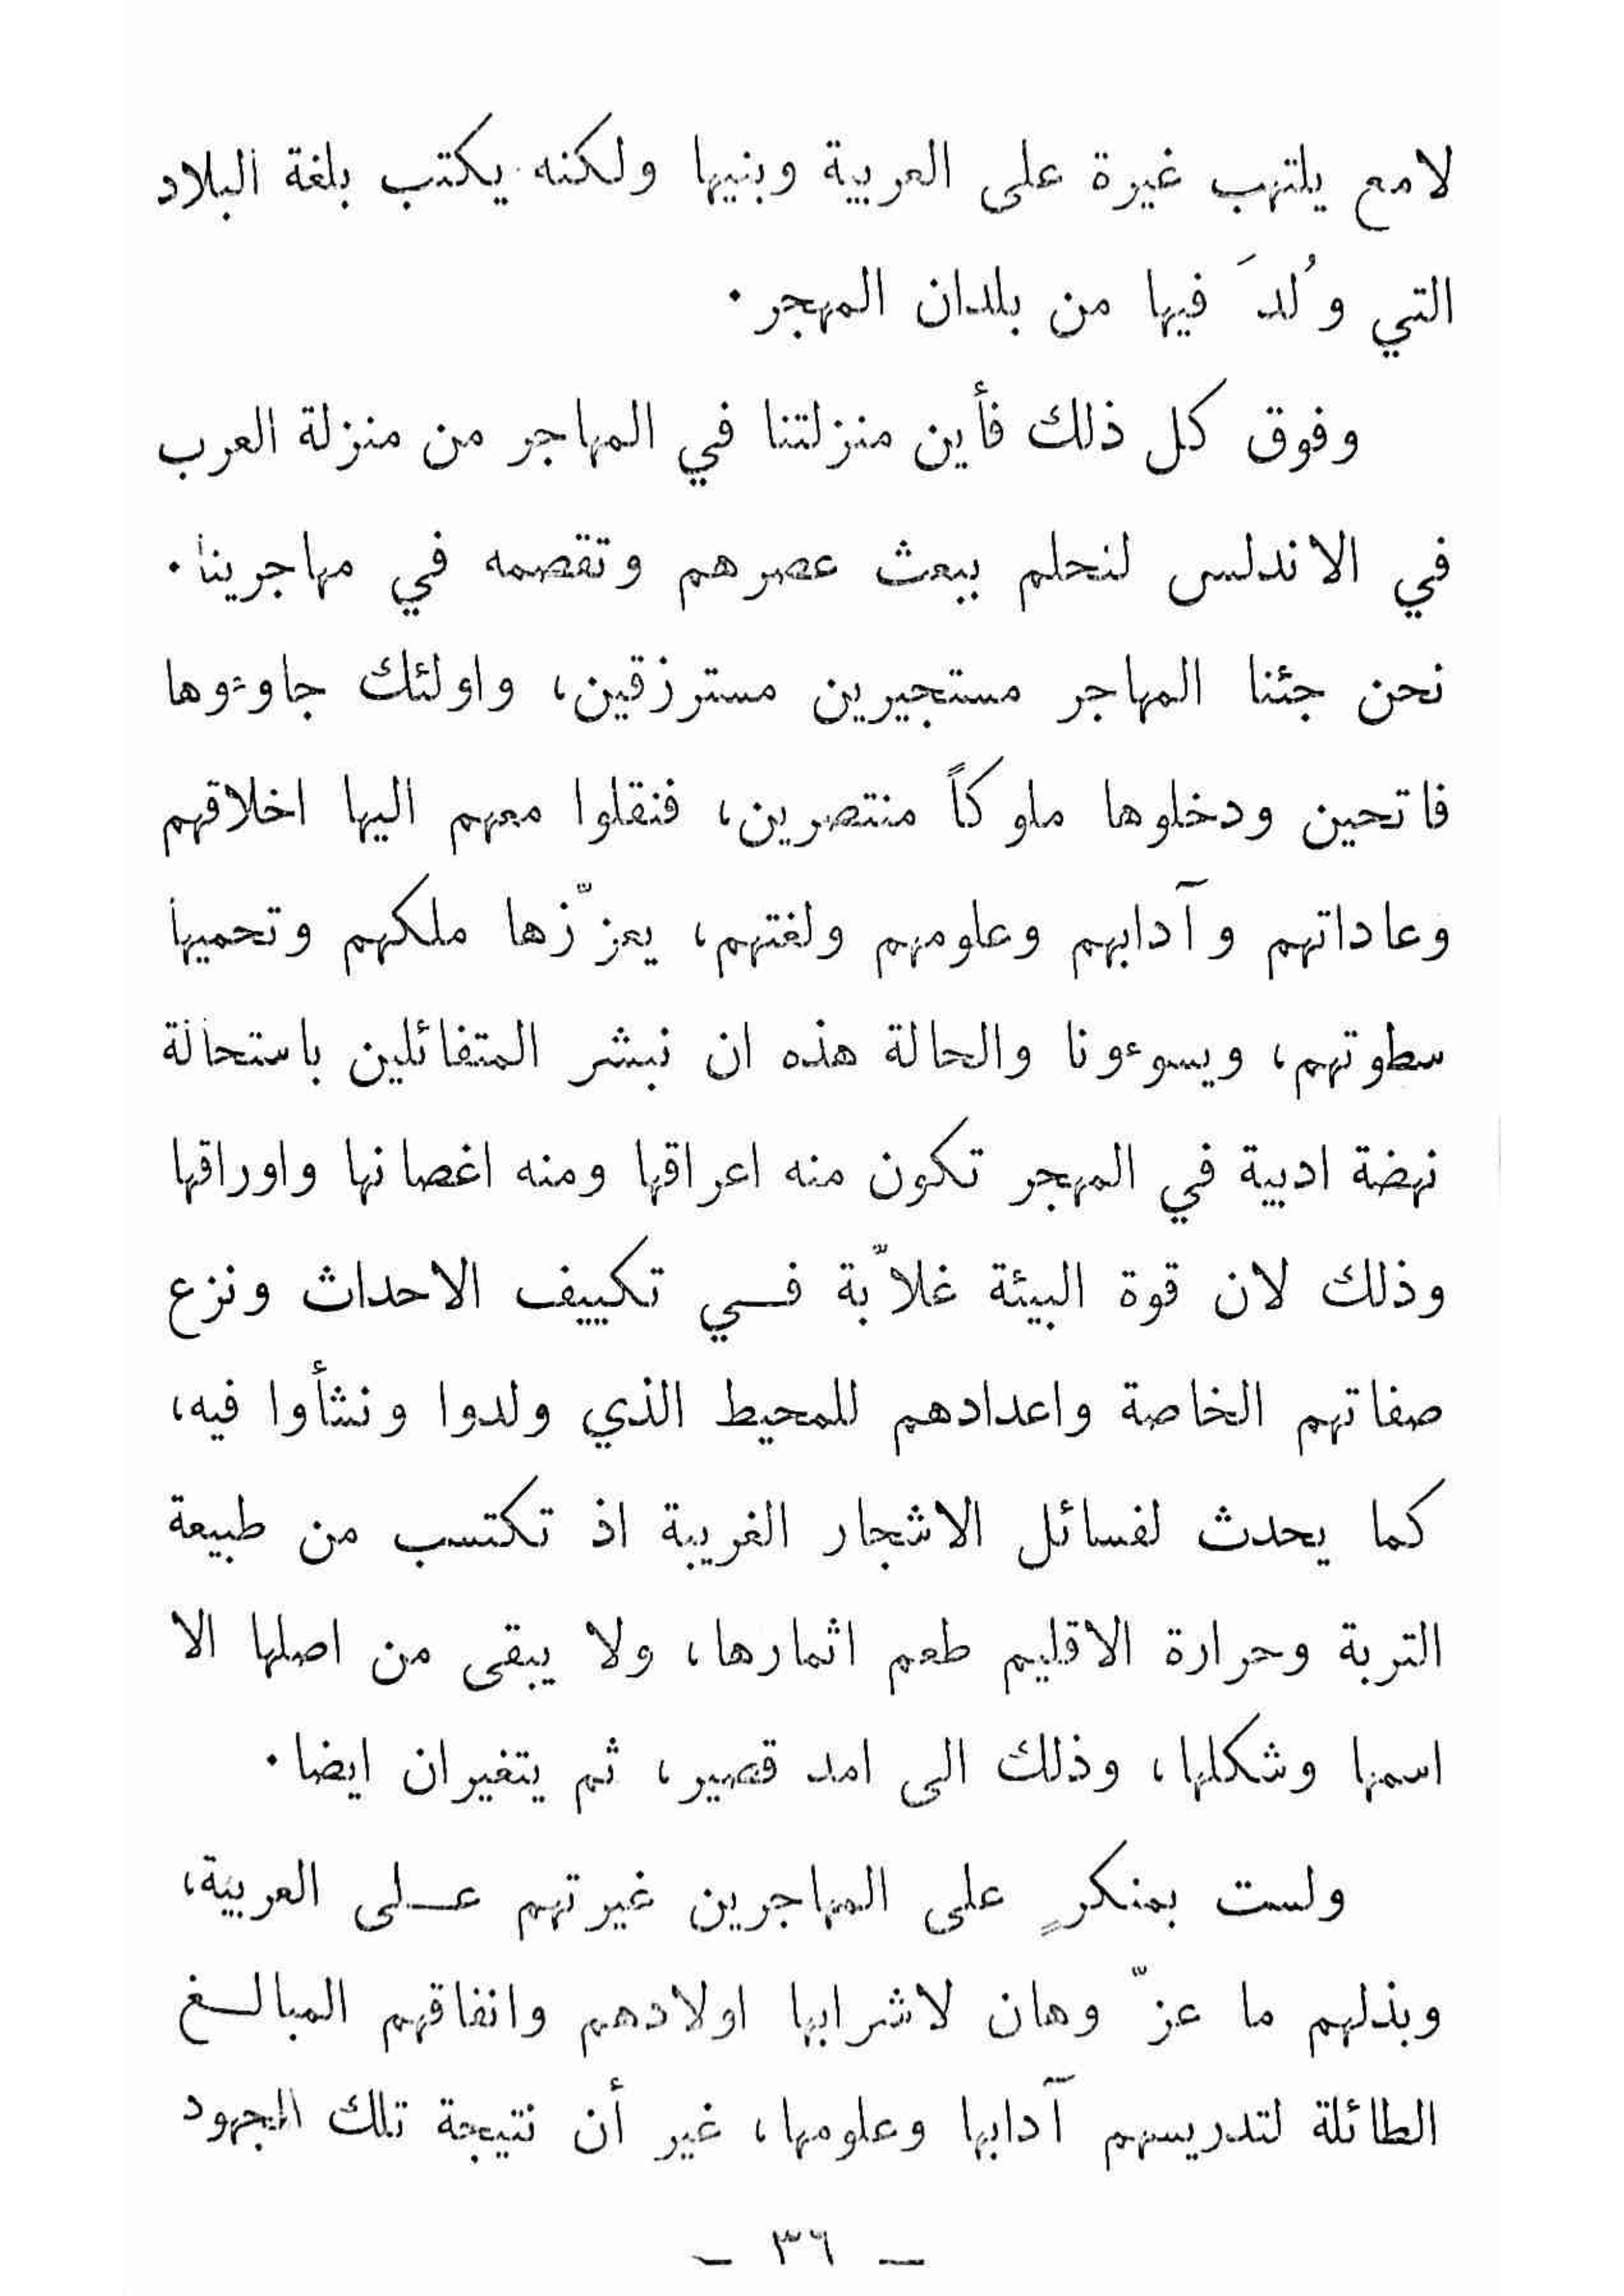 لامع يلتهب غيرة على العربية وبنيها ولكنه يكتب بلغة البلاد
التي وُلدَ فيها من بلدان المهجر.
وفوق كل ذلك فأين منزلتنا في المهاجر من منزلة العرب
في الاندلس لنحلم ببعث عصرهم وتقصمه في مهاجرينا.
نحن جئنا المهاجر مستجيرين مسترزقين، واولئك جاوءوها
فاتحين ودخلوها ملوكاً منتصرين، فنقلوا معهم اليها اخلاقهم
وعاداتهم وآدابهم وعلومهم ولغتهم، يعزّزها ملكهم وتحميها
سطوتهم، ويسوءونا والحالة هذه ان نبشر المتفائلين باستحالة
نهضة ادبية في المهجر تكون منه اعراقها ومنه اغصانها واوراقها
وذلك لان قوة البيئة غلاّبة فــي تكييف الاحداث ونزع
صفاتهم الخاصة واعدادهم للمحيط الذي ولدوا ونشأوا فيه،
كما يحدث لفسائل الاشجار الغريبة اذ تكتسب من طبيعة
التربة وحرارة الاقليم طعم اثمارها، ولا يبقى من اصلها الا
اسمها وشكلها، وذلك الى امد قصير، ثم يتغيران ايضا.
ولست بمنكرٍ على المهاجرين غيرتهم عــلى العربية،
وبذلهم ما عزّ وهان لاشرابها اولادهم وانفاقهم المبالــغ
الطائلة لتدريسهم آدابها وعلومها، غير أن نتيجة تلك الجهود
— ٣٦ —